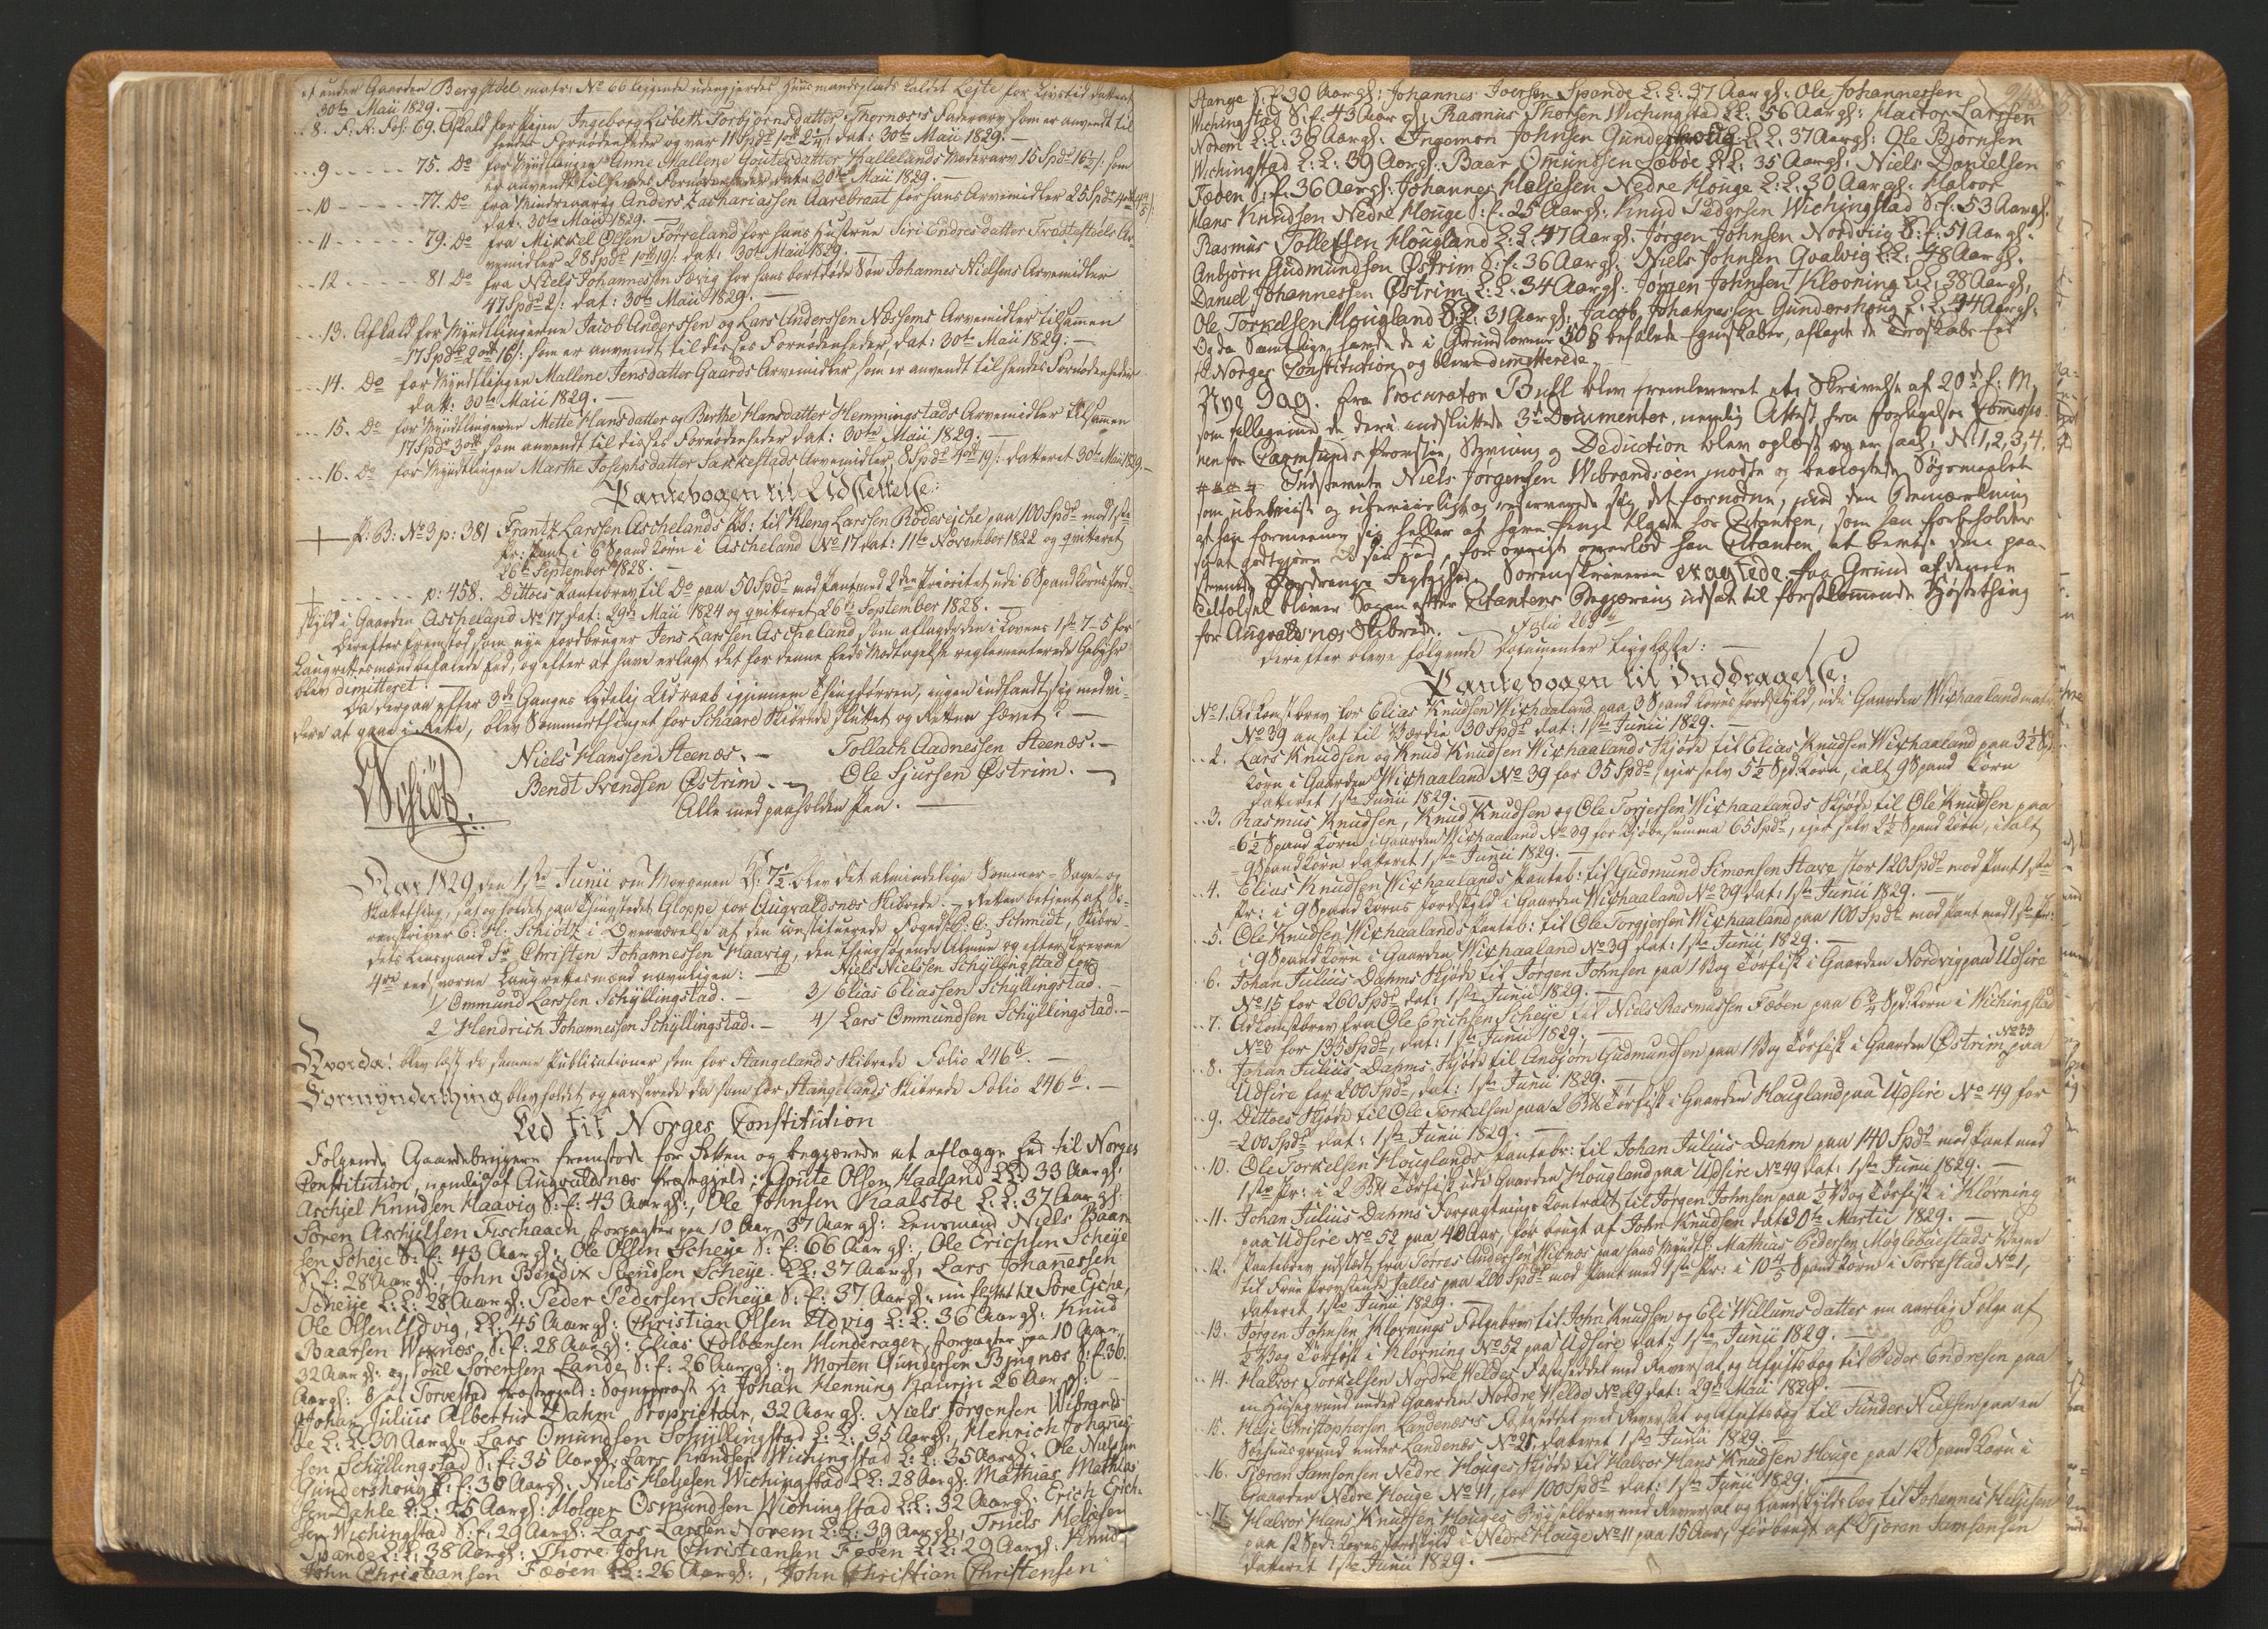 et under Gaarden Bergstøel matr: No 66 liggende udengjerdes Huusmandsplads kaldet Lejte for Livstid datteret
30te Maii 1829. —
8. F: R: Fol: 69. Afkald for Pigen Ingeborg Lisbeth Torbjørnsdatter Thornæs's Faderarv som er anvendt til
hendes Fornødenheder og var 11 Spd 1 ort dat: 30te Maii 1829. —
9 75. Do for Myndlingen Anne Mallene Goutesdatter Kallelands Moderarv 15 Spd 16½ s: som
er anvendt til hendes Fornødenheder dat: 30te Maii 1829. —
10 77. Do fra Mindreaarig Anders Zachariassen Aarebraat for hans Arvemidler 25 Spd 4 ort
dat: 30te Maii 1829. —
11 79. Do fra Mikkel Olsen Førreland for hans Hustrue Siri Endresdatter Ar-
vemidler 28 Spd 1 ort 19 s: dat: 30te Maii 1829. —
12 81 Do fra Niels Johannessen Sævig for hans bortdøde Søn Johannes Nielsens Arvemidler
47 Spd 2 s: dat: 30te Maii 1829. —
13. Afkald for Myndlingerne Jacob Anderssen og Lars Anderssen Næssems Arvemidler tilsamen
17 Spd 2 ort 16 s: som er anvendt til disses Fornødenheder, dat: 30te Maii 1829. —
14. Do for Myndlingen Mallene Jensdatter Gaards Arvemidler som er anvendt til hendes Fornødenheder
dat: 30te Maii 1829. —
15. Do for Myndlingerne Mette Hansdatter og Berthe Hansdatter Hemmingstads Arvemidler tilsamen
17 Spd 3 ort som anvendt til disses Fornødenheder dat: 30te Maii 1829. —
16. Do for Myndlingen Marthe Josephsdatter Sakkestads Arvemidler, 8 Spd 4 ort 19 s: datteret 30te Maii 1829. —
Pantebogen til Udslettelse:
P: B: No 3 p: 381 Frantz Larssen Aschelands Pb: til Kleng Larssen Rødesejche paa 100 Spd mod 1ste
Pr: Pant i 6 Spand Korn i Ascheland No 17 dat: 11te November 1822 og qvitteret
26te September 1828. —
p: 458. Dittoes Pantebrev til Do paa 50 Spd mod Pant med 2den Prioritet udi 6 Spand Korns Jord-
skyld i Gaarden Ascheland No 17, dat: 29de Maii 1824 og qvitteret 26te September 1828. —
Derefter fremstod som nye Jordbruger Jens Larssen Ascheland som aflagde den i Lovens 1ste 7-5 for
Laugrettesmænd befalede Eed, og efter at have erlagt det for denne Eeds Modtagelse reglementerede Gebyhr
blev dimitteret. —
Da derpaa efter 3de Ganges lydelig Udraab igjennem Thingdørren, ingen indfandt sig med vi-
dere at gaae i Rette, blev Sommerthinget for Schaare Skibrede sluttet og Retten hævet. —
Niels Hanssen Steenæs. — Tollach Aadnessen Steenæs. —
Bendt Svendsen Østrim. — Ole Sjursen Østrim. —
Alle med paaholden Pen. —
Schiøtz
Aar 1829 den 1ste Junii om Morgenen Kl: 7½ blev det almindelige Sommer- Sage- og
Skattething, sat og holdet paa Thingstedet Gloppe for Augvaldsnæs Skibrede. Retten betjent af So-
renskriver C: H: Schiøtz i Overværelse af den constituerede Foged C: Schmidt, Skibre-
dets Lensmand Sr Christen Johannessen Haavig, den Thingsøgende Almue og efterskrevne
4re eedsvorne Laugrettesmænd navnligen: — Niels Nielssen Schyllingstad for
1/ Ommund Larssen Schyllingstad. — 3/ Elias Eliassen Schyllingstad. —
2 Hendrich Johannessen Schyllingstad. — 4/ Lars Ommundsen Schyllingstad. —
Hvorda: blev læst de samme Publicationer som for Stangelands Skibrede Folio 246b. —
Formynderthing blev holdet og passerede da som for Stangelands Skibrede Folio 246b. —
Eed til Norges Constitution
Følgende Gaardebrugere fremstode for Retten og begjærede at aflægge Eed til Norges
Constitution, nemlig af Augvaldsnæs Præstegjeld: Goute Olsen Haaland L:L: 33 Aar gl:
Aschjel Knudsen Haavig S: f: 43 Aar gl:, Ole Johnsen Kaalstøe L: L: 37 Aar gl:
Søren Aschjelsen Fischaaen, forpagter paa 10 Aar, 37 Aar gl: Lensmand Niels Baar-
sen Scheje S: f: 43 Aar gl: Ole Olsen Scheye S: f: 66 Aar gl:, Ole Erichsen Scheye
S: f: 28 Aar gl:, John Bendix Svendsen Scheye. L:L: 37 Aar gl: Lars Johannessen
Scheye L: L: 28 Aar gl: Peder Pedersen Scheye S: f: 37 Aar gl: nu flyttet til Søre Ejche,
Ole Olsen Udvig, L:L: 45 Aar gl: Christian Olsen Udvig L: L: 36 Aar gl: Knud
Baarsen Wexnæs, S: f: 28 Aar gl: Elias Colbensen Hinderager, forpagter paa 10 Aar,
32 Aar gl: og Poul Sørensen Lande S: f: 26 Aar gl: Morten Gundersen Bjugnæs S: f: 30.
Aar gl: b/ af Torvestad Præstegjeld: Sognepræst Hr Johan Henning Kaurin 26 Aar gl:
Johan Julius Albertus Dahm Proprietair, 32 Aar gl: Niels Jørgensen Wibrands-
øe L: L: 30 Aar gl: Lars Omundsen Schyllingstad L: L: 35 Aar gl:, Henrich Johanes-
sen Schyllingstad S: f: 35 Aar gl: Lars Knudsen Wichingstad L: L: 35 Aar gl: Ole Nielsen
Gundershoug L: L: 36 Aar gl: Niels Heljesen Wichingstad L:L: 28 Aar gl: Mathias Mathias
sen Dahle L: L: 25 Aar gl: Holger Osmundsen Wichingstad L:L: 32 Aar gl: Erich Erich-
sen Wichingstad S: f: 29 Aar gl: Lars Larssen Norem L: L: 39 Aar gl:, Truels Heljesen
Spande L: L: 38 Aar gl: Thore John Christiansen Fæøen L: L: 29 Aar gl: Knud
John Christiansen Fæøen L:L: 26 Aar gl:, John Christian Christensen
248
Stange S: f: 30 Aar gl: Johannes Joersen Spande L: L: 37 Aar gl: Ole Johannessen
Wichingstad S: f: 43 Aar gl: Rasmus Thorsen Wichingstad L:L: 56 Aar gl: Hactor Larssen
Norem L: L: 38 Aar gl: Ingemon Johnsen Gundershoug L: L: 37 Aar gl: Ole Bjørnsen
Wichingstad L: L: 39 Aar gl: Baar Omundsen Sæbøe L: L: 35 Aar gl: Niels Danielsen
Fæøen S: f: 36 Aar gl: Johannes Heljesen Nedre Houge L: L: 30 Aar gl: Halvor
Hans Knudsen Nedre Houge S: f: 25 Aar gl: Knud Pedersen Wichingstad S: f: 53 Aar gl:
Rasmus Tollefsen Hougland L: L: 47 Aar gl: Jørgen Johnsen Nordvig S: f: 51 Aar gl:
Anbjørn Gudmundsen Østrim S: f: 36 Aar gl: Niels Johnsen Qvalvig L:L: 48 Aar gl:
Daniel Johannessen Østrim L: L: 34 Aar gl: Jørgen Johnsen Kloøning L:L: 38 Aar gl:
Ole Torkelsen Hougland L: 31 Aar gl: Jacob Johannessen Gundershoug L: L: 44 Aar gl:
Og da samtlige havde de i Grundlovens 50 § befalede Egenskaber, aflagde de Troskabs Eed
til Norges Constitution og bleve dimitterede.
Nye Sag. Fra Procurator Buhl blev fremleveret et Skrivelse af 20de f: M.
som tillige med de deri indsluttede 3de Documenter, nemlig Attest fra Forligelses Commissio-
nen for Carmsunds Provstie, Stevning og Deduction blev oplæst og er saal: No 1, 2, 3, 4.
Indstevnte Niels Jørgensen Wibrandsøen mødte og benægtede Søgsmaalet
som ubeviist og reserverede sig det fornødne, med den Bemærkning
at han formeente sig heller at have Penge tilgode hos Citanten, som han forbeholder
sig at godtgjøre, for øvrigt overlod han Citanten at bevise den paa-
stævnte Fordrings Rigtighed. Sorenskriveren eragtede: Paa Grund af denne
Tilholsel bliver Sagen efter Citantens Begjæring udsat til førstkommende Høstething
for Augvaldsnæs Skibrede.
Derefter bleve følgende Documenter tinglæste:
Pantebogen til Inddragelse:
No 1. Adkomstbrev for Elias Knudsen Wixhaaland paa 3 Spand Korns Jordskyld, udi Gaarden Wixhaaland matr:
No 39 ansat til Værdie 30 Spd dat: 1ste Junii 1829. —
2. Lars Knudsen og Knud Knudsen Wixhaalands Skjøde til Elias Knudsen Wixhaaland paa 3½ Sp:
Korn i Gaarden Wixhaaland No 39 for 35 Spd ejer selv 5½ Spd: Korn, ialt 9 Spand Korn
datteret 1ste Junii 1829. —
3. Rasmus Knudsen, Knud Knudsen og Ole Torjersen Wixhaalands Skjøde til Ole Knudsen paa
6½ Spand Korn i Gaarden Wixhaaland No 39 for Kjøbesumma 65 Spd, ejer selv 2½ Spand Korn, ialt
9 Spand Korn datteret 1ste Junii 1829. —
4. Elias Knudsen Wixhaalands Panteb: til Gudmund Simonsen Stave stor 120 Spd mod Pant 1ste
Pr: i 9 Spand Korns Jordskyld i Gaarden Wixhaaland No 39 dat: 1ste Junii 1829. —
5. Ole Knudsen Wixhaalands Panteb: til Ole Torgjersen Wixhaaland paa 100 Spd mod Pant med 1ste Pr:
i 9 Spand Korn i Gaarden Wixhaaland No 39 dat: 1ste Junii 1829. —
6. Johan Julius Dahms Skjøde til Jørgen Johnsen paa 1 Vog Tørfisk i Gaarden Nordvig paa Udsire
No 15 for 260 Spd, dat: 1ste Junii 1829. —
7. Adkomstbrev fra Ole Erichsen Scheye til Niels Rasmussen Fæøen paa 6¾ Spd: Korn i Wichingstad
No 8 for 135 Spd, dat: 1ste Junii 1829. —
8. Johan Julius Dahms Skjøde til Anbjørn Gudmundsen paa 1 Vog Tørfisk i Gaarden Østrim No 33 paa
Udsire for 200 Spd, dat: 1ste Junii 1829.
9. Dittoes Skjøde til Ole Torkelsen paa 2 Bpd Tørfisk i Gaarden Hougland paa Udsire No 49 for
200 Spd dat: 1ste Junii 1829. —
10. Ole Torkelsen Houglands Pantebr: til Johan Julius Dahm paa 140 Spd mod Pant med
1ste Pr: i 2 Bpd Tørfisk udi Gaarden Hougland paa Udsire No 49 dat: 1ste Junii 1829. —
11. Johan Julius Dahms Forpagtnings Contract til Jørgen Johnsen paa ½ Vog Tørfisk i Kløvning
paa Udsire No 52 paa 40 Aar, før brugt af John Knudsen dat: 30te Martii 1829. —
12. Pantebrev udstædt fra Torres Andersen Wignæs paa hans Myndtl: Mathias Pedersen Møglebustads Vegne
til Frue Provstinde Jalles paa 200 Spd mod Pant med 1ste Pr: i 10⅘ Spand Korn i Torvestad No 1,
datteret 1ste Junii 1829. —
13. Jørgen Johnsen Kløvnings Følgebrev til John Knudsen og Eli Willumsdatter en aarlig Følge af
½ Vog Tørfisk i Kløvning No 52 paa Udsire dat: 1ste Junii 1829. —
14. Halvor Torkelsen Nordre Weldes Fæsteseddel med Revers af og Afgiftsbog til Peder Endresen paa
en Huusegrund under Gaarden Nordre Welde No 29 dat: 29de Maii 1829. —
15. Helje Christophersen Landenæs's Fæsteseddel med Reversal og Afgiftsbog til Sunder Nielsen paa en
Søehuusgrund under Landenæs No 21, datteret 1ste Junii 1829. —
16. Tjøran Samsonsen Nedre Houges Skjøde til Halvor Hans Knudsen Houge paa 12 Spand Korn i
Gaarden Nedre Houge No 11, for 100 Spd dat: 1ste Junii 1829. —
17. Halvor Hans Knudsen Houges Bygselbrev med Reversal og Landskyldsbog til Johannes Heljesen
paa 12 Spd: Korns Jordskyld i Nedre Houge No 11 paa 15 Aar, før brugt af Tjøran Samsonsen
datteret 1ste Junii 1829. —